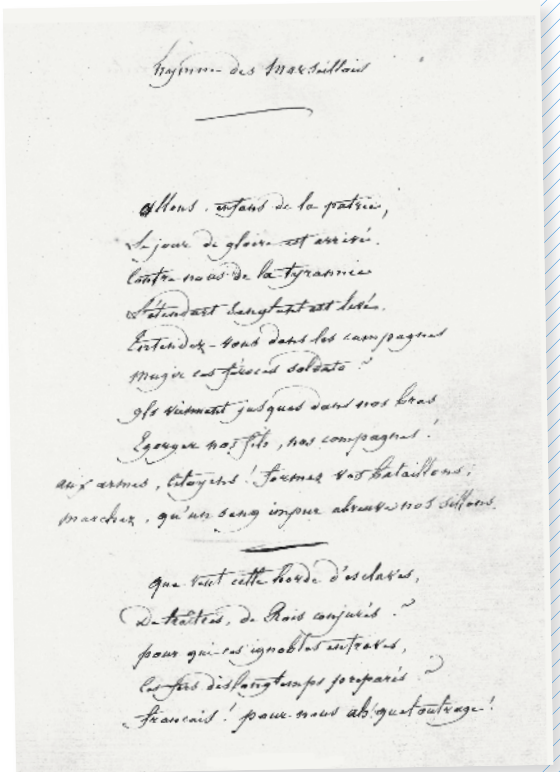 hymne des Marseillais
allons, enfans de la patrie,
Le jour de gloire est arrivé.
Contre nous de la tyrannie
L'étendart sanglant est levé.
Entendez-vous dans les campagnes
mugir ces féroces soldats ?
Ils viennent jusques dans nos bras
Egorger nos fils, nos compagnes !
aux armes, citoyens ! formez vos bataillons ;
marchez, qu'un sang impur abreuve nos sillons.
que veut cette horde d'esclaves,
De traîtres, de Rois conjurés ?
pour qui ces ignobles entraves,
Ces fers dès longtemps préparés ?
français ! pour nous ah ! quel outrage !